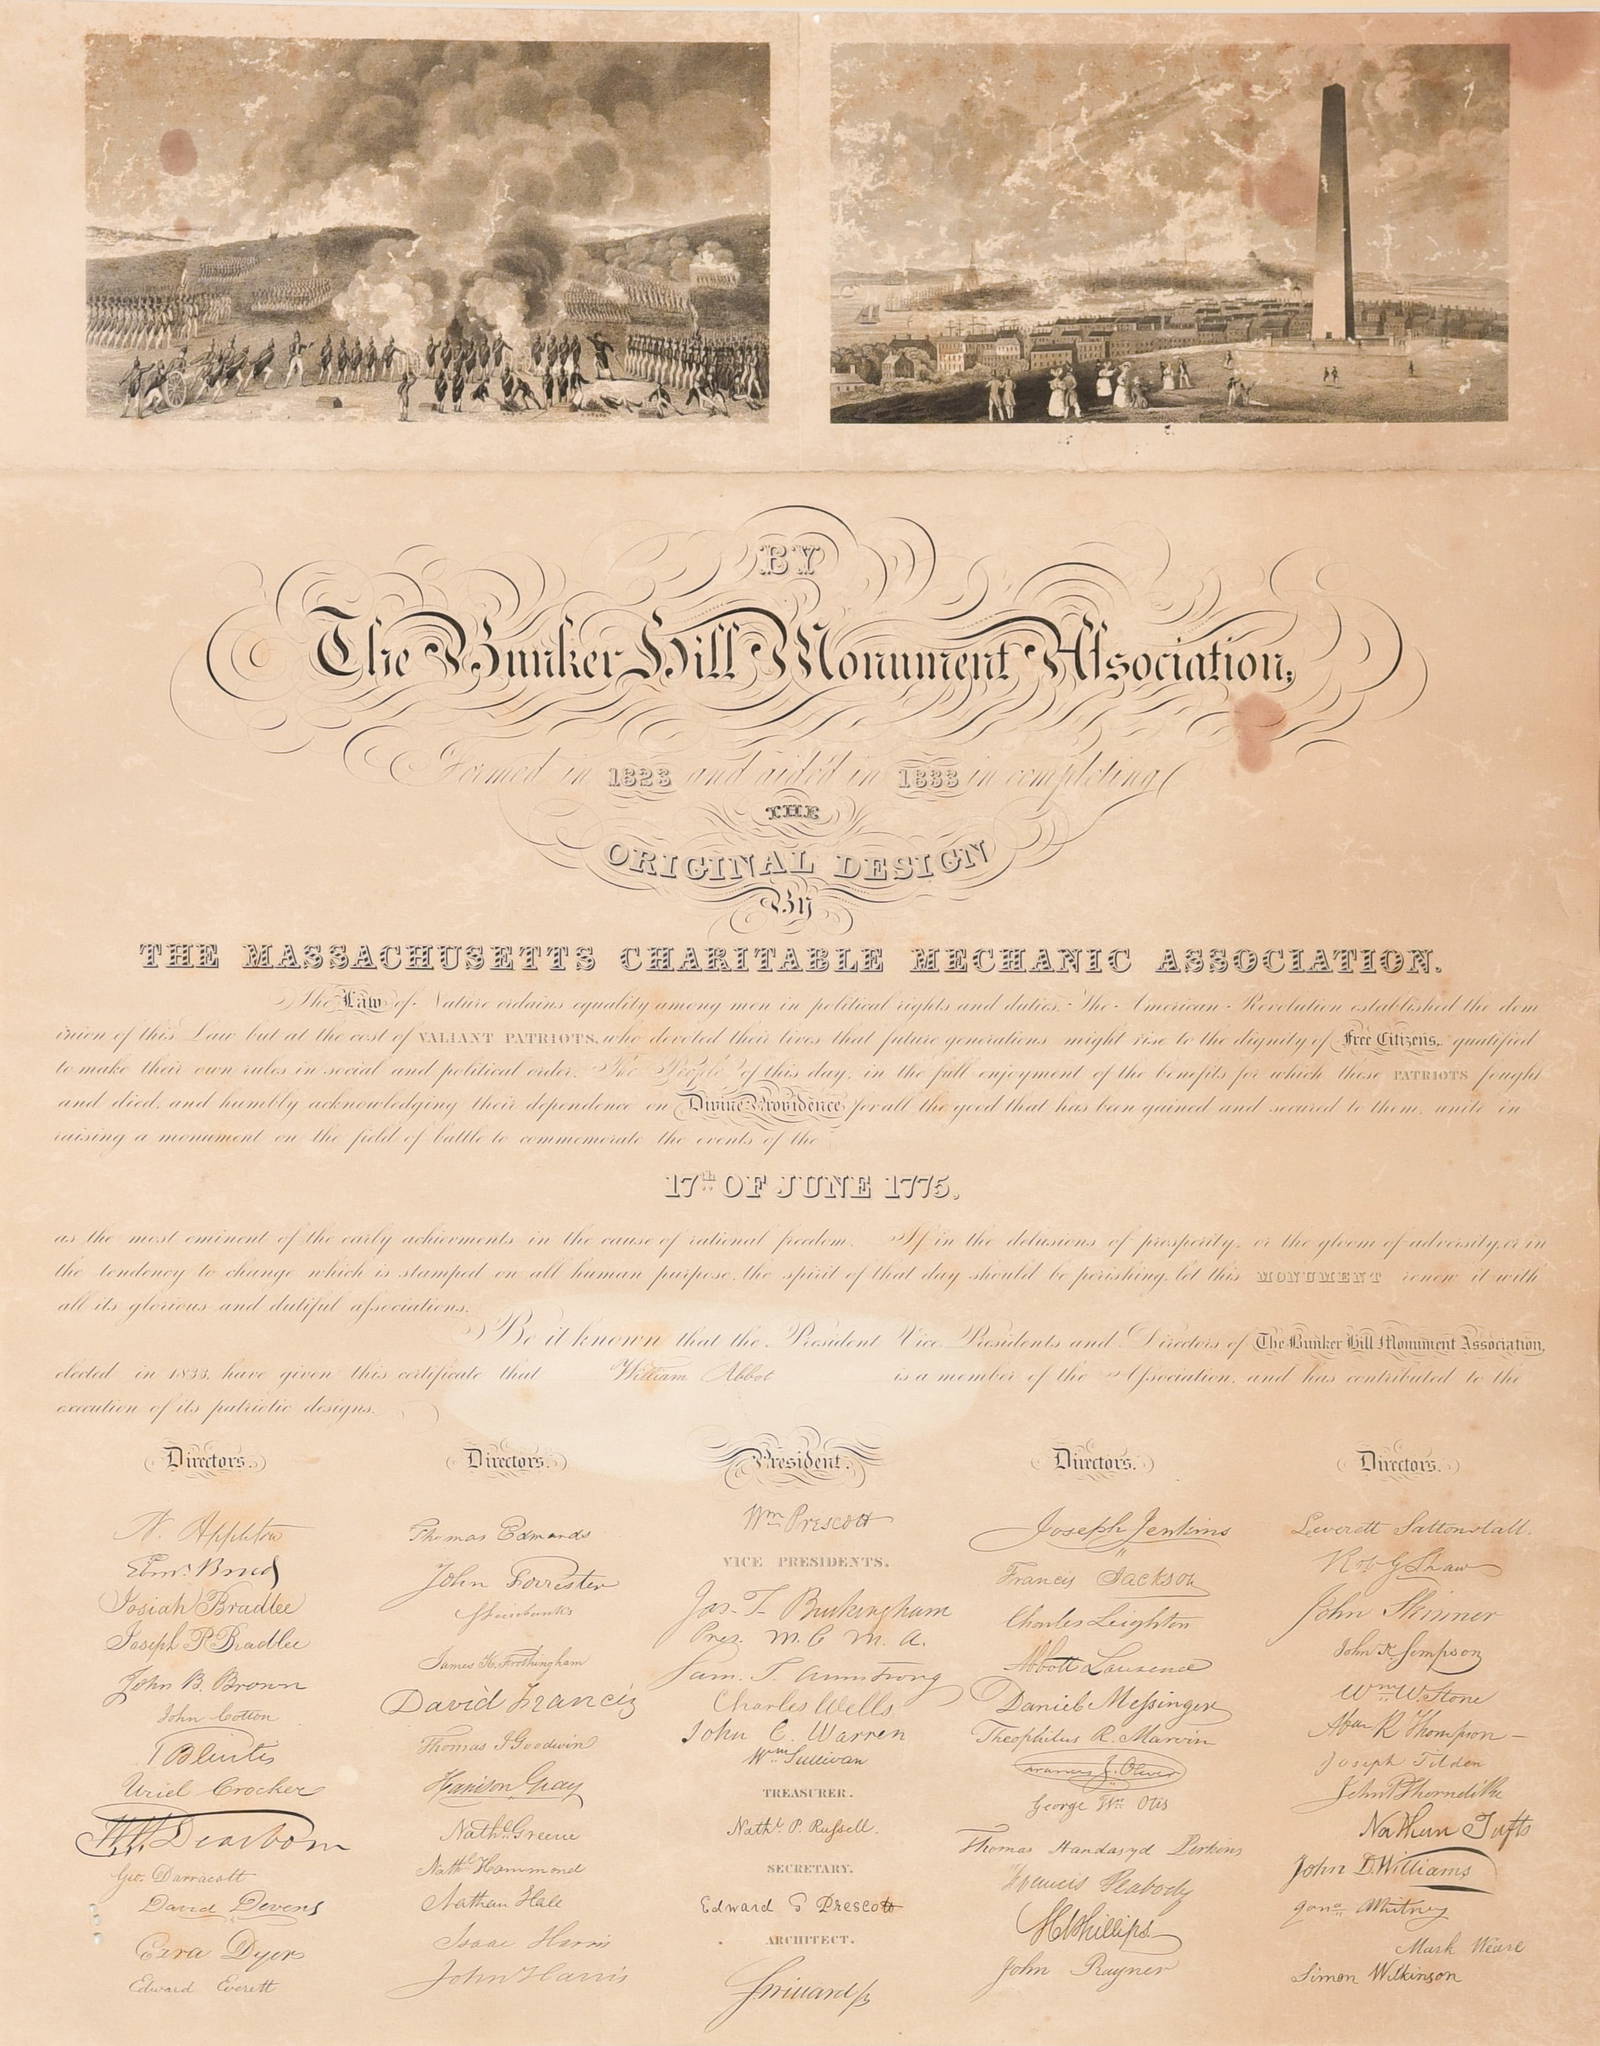 BY
The Bunker Hill Monument Association,
Formed in 1823 and aided in 1833 in completing
THE
ORIGINAL DESIGN
By
THE MASSACHUSETTS CHARITABLE MECHANIC ASSOCIATION.
The Law of Nature ordains equality among men in political rights and duties. The American Revolution established the dom
inion of this Law but at the cost of VALIANT PATRIOTS, who devoted their lives that future generations might rise to the dignity of Free Citizens, qualified
to make their own rules in social and political order. The People of this day, in the full enjoyment of the benefits for which these PATRIOTS fought
and died, and humbly acknowledging their dependence on Divine Providence for all the good that has been gained and secured to them, unite in
raising a monument on the field of battle to commemorate the events of the
17th OF JUNE 1775,
as the most eminent of the early achievments in the cause of rational freedom. If in the delusions of prosperity, or the gloom of adversity, or in
the tendency to change which is stamped on all human purpose, the spirit of that day should be perishing, let this MONUMENT renew it with
all its glorious and dutiful associations.
Be it known that the President Vice Presidents and Directors of The Bunker Hill Monument Association,
elected in 1833, have given this certificate that William Abbot is a member of the Association, and has contributed to the
execution of its patriotic designs.
Directors. Directors. President. Directors. Directors.
N. Appleton
Josiah Bradlee
Joseph P. Bradlee
John B. Brown
John Cotton
Uriel Crocker
Dearborn
Geo. Darracott
David Devens
Ezra Dyer
Edward Everett
Thomas Edmands
John Forrester
James K. Frothingham
David Francis
Thomas J Goodwin
Harrison Gray
Nathl Greene
Nathl Hammond
Nathan Hale
Isaac Harris
John Harris
Wm Prescott
VICE PRESIDENTS.
Jos. T. Buckingham
Pres. M. C. M. A.
Sam. T. Armstrong
Charles Wells
John C. Warren
Wm Sullivan
TREASURER.
Nathl. P. Russell.
SECRETARY.
Edward G Prescott
ARCHITECT.
Joseph Jenkins
Francis Jackson
Charles Leighton
Abbott Lawrence
Daniel Messinger
Theophilus R. Marvin
Francis J. Oliver
George Wm Otis
Thomas Handasyd Perkins
Francis Peabody
Phillips
John Rayner
Leverett Saltonstall.
Rob G Shaw
John Skinner
John K Simpson
Wm W. Stone
R Thompson
Joseph Tilden
John P Thorndike
Nathan Tufts
John D. Williams
Jona Whitney
Mark Weare
Simon Wilkinson